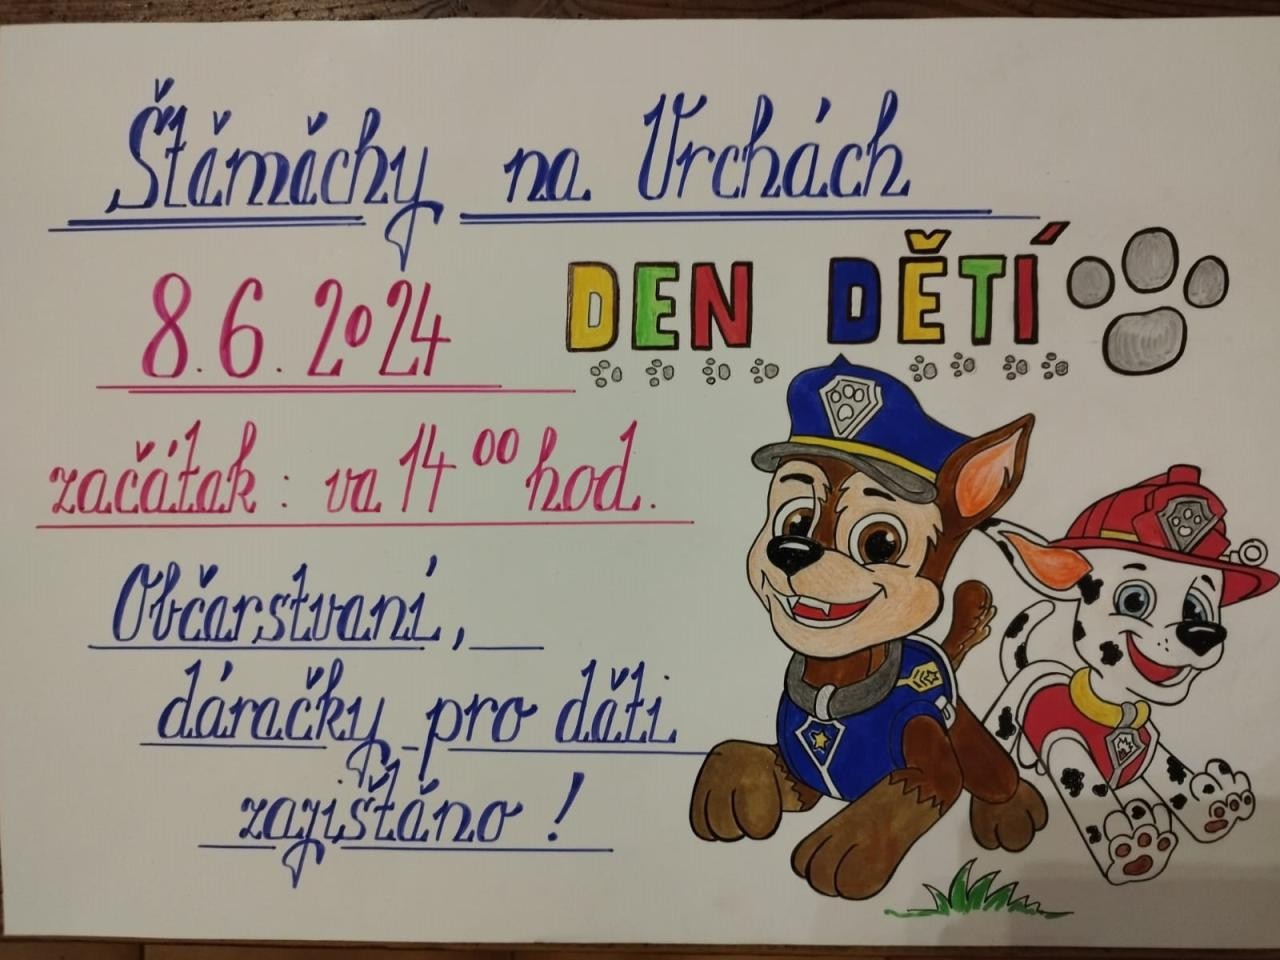 Štěměchy na Vrchách
8.6.2024
DEN DĚTÍ
začátek : ve 14 00 hod.
Občerstvení,
dárečky pro děti
zajištěno !